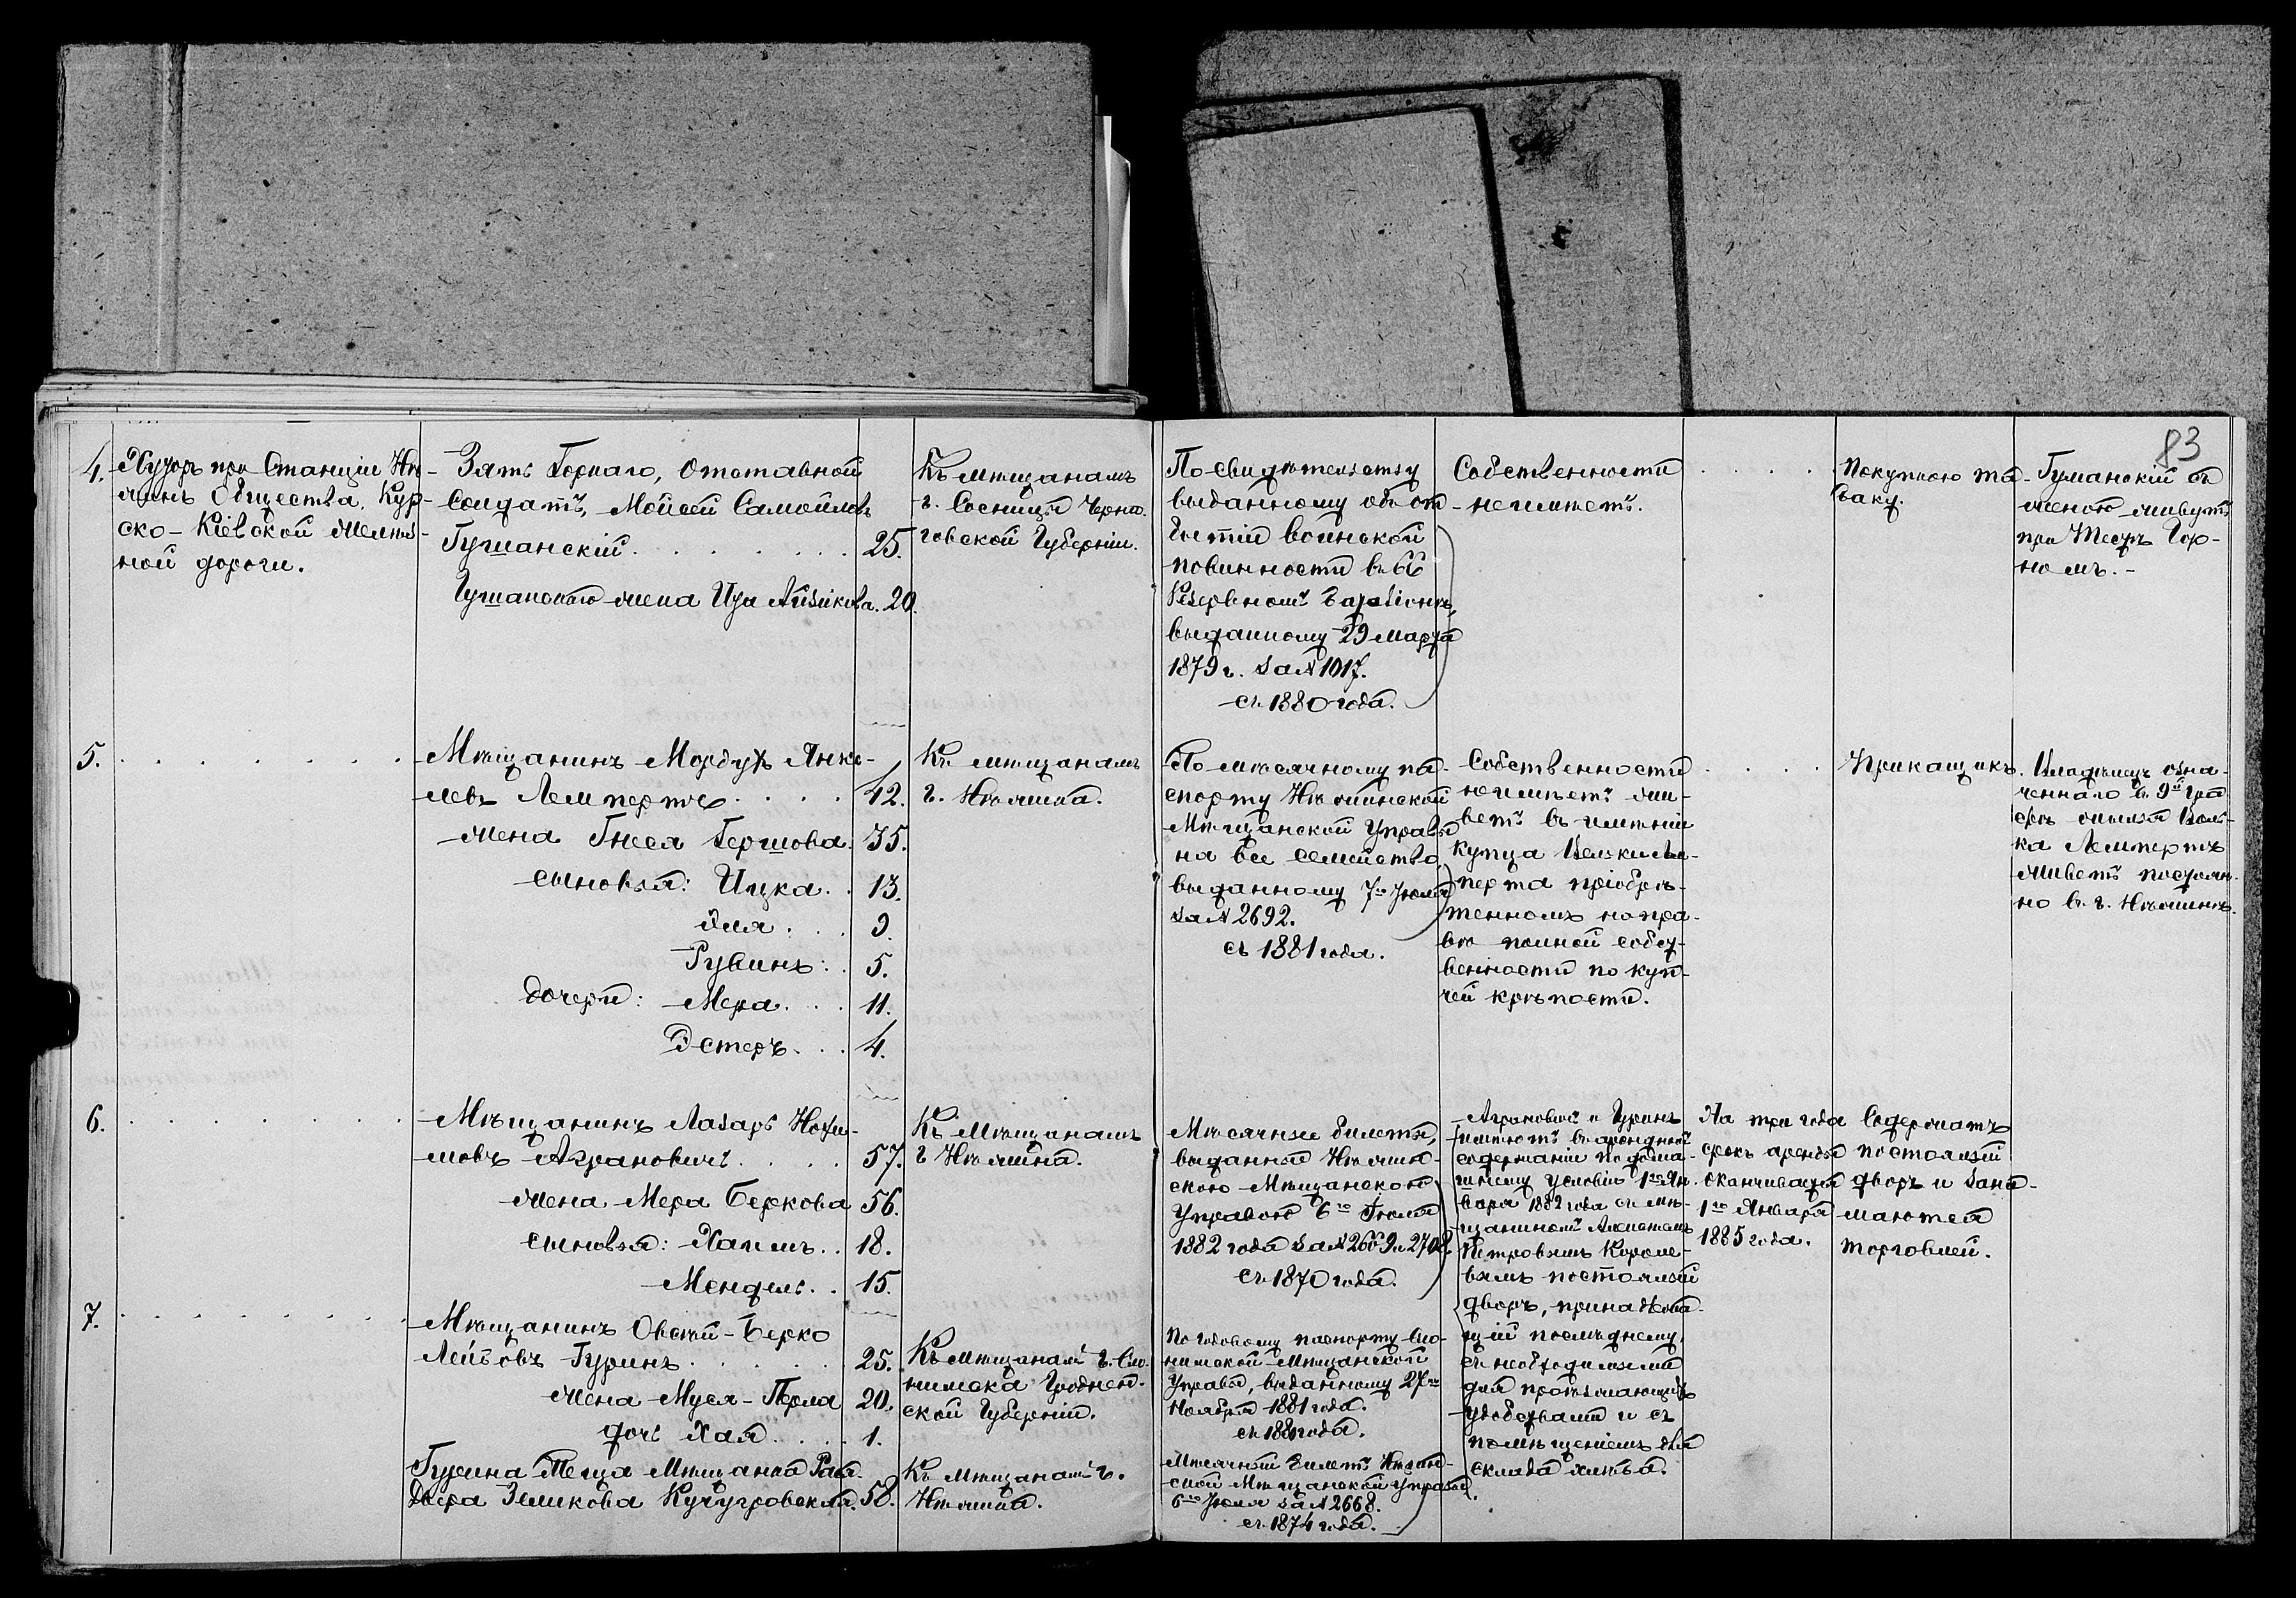 83
4.
Хуторъ при Станціи Нѣ-
жинъ Общества Кур-
ско-Кіевской желѣз-
ной дороги.
Зять Горнаго, Отставной
Солдатъ, Мойсей Самойловъ
Гуманскій . . . . . . 25.
Гуманскаго жена Ида Айзикова. 20.
Къ мѣщанамъ
г. Сосницы Черни-
говской Губерніи.
По свидѣтельству
выданному объ от-
бытіи воинской
повинности въ 66
Резервномъ Баталіонѣ,
выданному 29 Марта
1879 г. за № 1017.
съ 1880 года.
Собственности
неимѣетъ.
. . . .
Покупкою та-
баку.
Гуманскій съ
женою живутъ
при Тестѣ Гор-
номъ. -
5. . . . . . . .
Мѣщанинъ Мордухъ Янке-
левъ Лемпертъ . . . . 42.
жена Гнеся Гершова. 35.
сыновья: Ицка. . 13.
Эля . . . 9.
Рувинъ: . 5.
дочери: Мера. . . 11.
Эстеръ. . . 4.
Къ мѣщанамъ
г. Нѣжина.
По мѣсячному па-
спорту Нѣжинской
Мѣщанской Управы
на все семейство,
выданному 7го Іюля
за № 2692.
съ 1881 года.
Собственности
неимѣетъ жи-
ветъ въ имѣніи
купца Велькиле-
перта пріобрѣ-
тенномъ на пра-
вѣ полной собст-
венности по куп-
чей крѣпости.
. . . .
Прикащикъ.
Владѣлецъ озна-
ченнаго въ 9й гра
фѣ имѣнія Воль-
ка Лемпертъ
живетъ постоян-
но въ г. Нѣжинѣ.
6. . . . . . . .
Мѣщанинъ Лазарь Нохи-
мовъ Аграновичъ . . . . 57.
жена Мера Беркова 56.
сыновья: Хаимъ. . 18.
Мендель. . 15.
Къ Мѣщанамъ
г Нѣжина.
Мѣсячные билеты,
выданные Нѣжин-
скою Мѣщанской
Управою 6го Іюля
1882 года за № 2669 и 2708.
съ 1870 года.
Аграновичъ и Гуринъ
имѣютъ въ арендномъ
содержаніи по домаш-
нему условію 1го Ян-
варя 1882 года съ мѣ-
щаниномъ
Петровымъ Короле-
вымъ постоялый
дворъ, принадлежа-
щій послѣднему,
съ необходимыми
для проѣзжающихъ
удобствами и съ
помѣщеніемъ для
склада хлѣба.
На три года
срокъ аренды
оканчивается
1го Января
1885 года.
Содержатъ
постоялый
дворъ и зани-
маются
торговлей.
7. . . . . . . .
Мѣщанинъ Овсей-Берко
Лейбовъ Гуринъ . . . . . 25.
жена Муся-Перла 20.
дочь Хая . . . . 1.
Гурина Теща Мѣщанка Рая-
Двера Зеликова Кучугровская. 58.
Къ мѣщанамъ г. Сло-
нимска Гроднен-
ской Губерніи.
Къ мѣщанамъ г.
Нѣжина.
По годовому паспорту Сло-
нимской Мѣщанской
Управы, выданному 27го
Ноября 1881 года.
съ 1880 года.
Мѣсячный билетъ Нѣжин-
ской Мѣщанской Управы
6го Іюля за № 2668.
съ 1874 года.